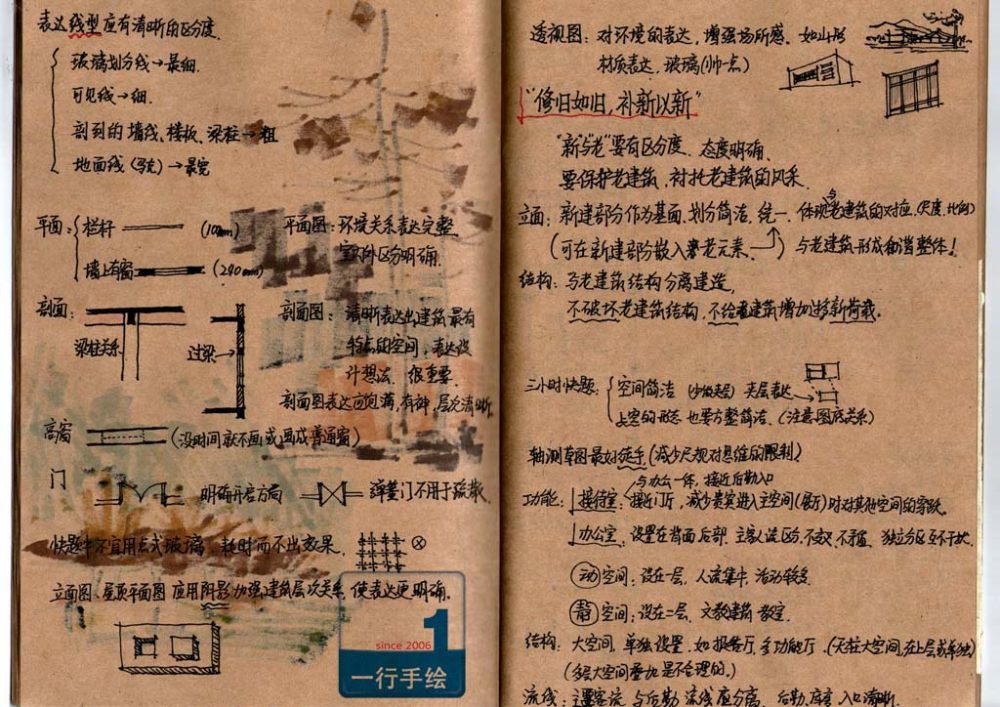 表达线型应有清晰的区分度.
玻璃划分线→最细.
可见线→细.
剖到的墙线、楼板、梁柱→粗
地面线 →最宽
平面: 栏杆
墙上有窗
平面图: 环境关系表达完整
室内外区分明确.
剖面:
梁柱关系
过梁
剖面图: 清晰表达出建筑最有
特点的空间, 表达设
计想法. 很重要.
剖面图表达应饱满,有神,层次清晰.
高窗
(没时间就不画或画成普通窗)
门
明确开启方向
弹簧门不用于疏散.
快题中不宜用点式玻璃, 耗时而不出效果.
立面图、屋顶平面图应用阴影加强建筑层次关系, 使表达更明确.
since 2006
1
一行手绘
透视图: 对环境的表达, 增强场所感. 如山形
材质表达, 玻璃(帅一点)
"修旧如旧, 补新以新"
"新"与"老"要有区分度. 态度明确.
要保护老建筑, 衬托老建筑的风采.
立面: 新建部分作为基面, 划分简洁, 统一. 体现与老建筑的对应. (尺度. 比例)
(可在新建部分嵌入老元素. 与老建筑形成和谐整体!
结构: 与老建筑结构分离建造,
不破坏老建筑结构, 不给老建筑增加新荷载.
三小时快题: 空间简洁 夹层表达
上空的形态也要方整简洁. (注意图底关系)
轴测草图最好徒手 (减少尺规对思维的限制)
与办公一体, 接近后勤入口
功能: 接待室: 接近门厅, 减少贵宾进入主空间(展厅)时对其他空间的穿越.
办公室: 设置在背面后部. 主客人流区分, 不交叉, 独立分区互不干扰.
动空间: 设在一层, 人流集中, 活动较多.
静空间: 设在二层. 文教建筑 教室.
结构: 大空间, 单独设置. 如报告厅, 多功能厅. (无柱大空间, 在上层或单独)
(多层大空间叠加是不合理的.)
流线: 客流与后勤流线应分离. 后勤, 库房入口清晰.